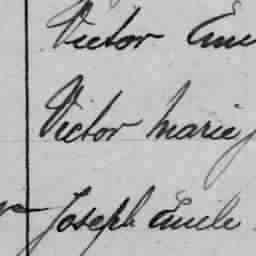 Victor Emi
Victor Marie
Joseph Emile